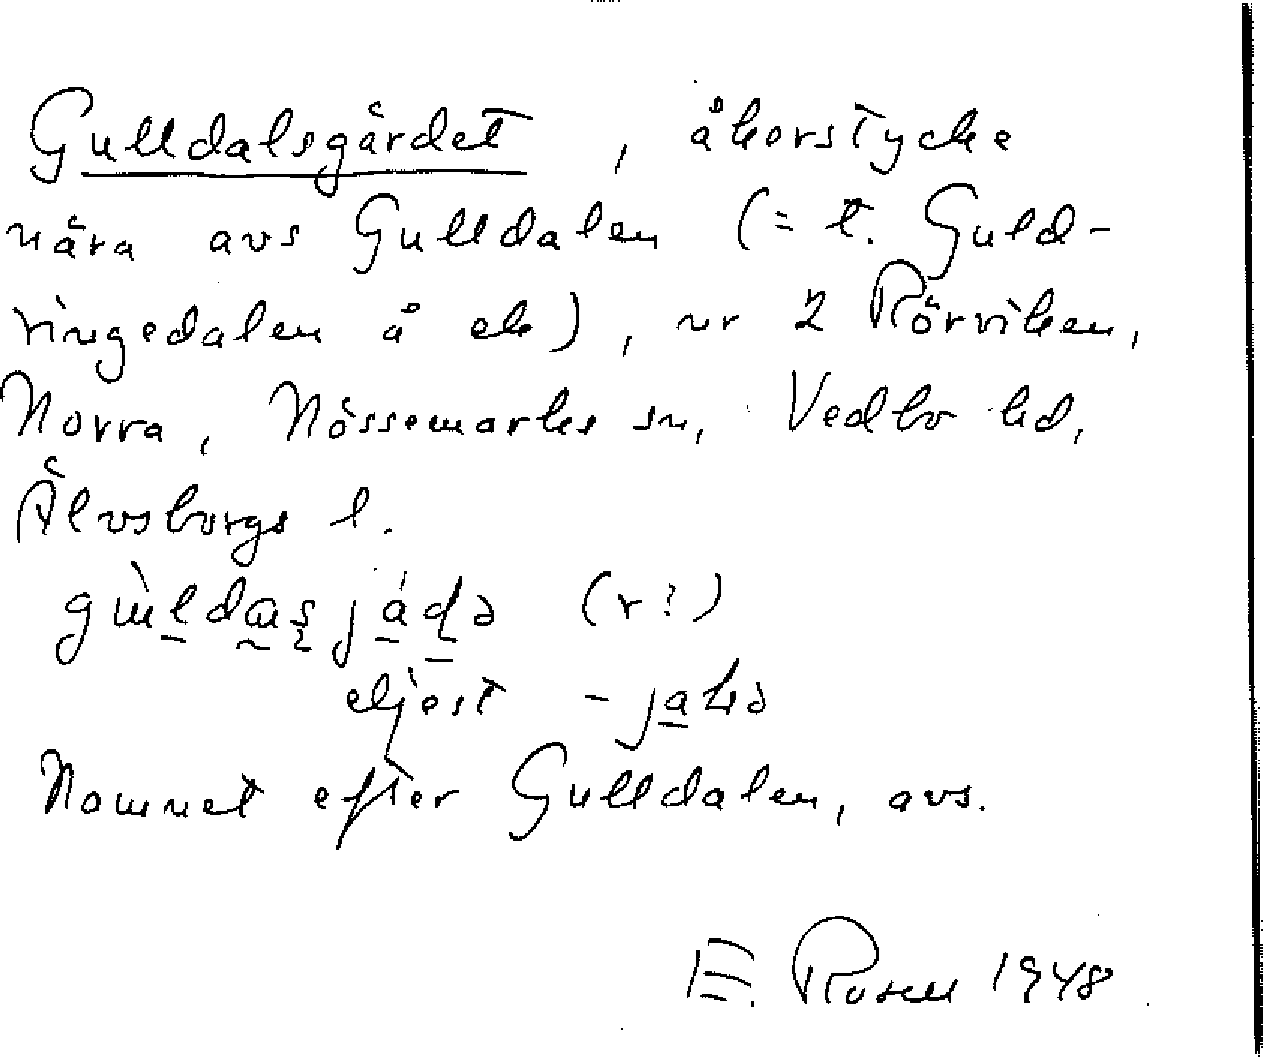 Gulldalsgärdet, åkerstycke
nära avs Gulldalen (= t. Guld-
ringedalen å ek), nr 2 Rörviken,
Norra, Nössemarks sn, Vedbo hd,
Älvsborgs l.
(r!)
eljest
Namnet efter Gulldalen, avs.
E. Rosell 1948